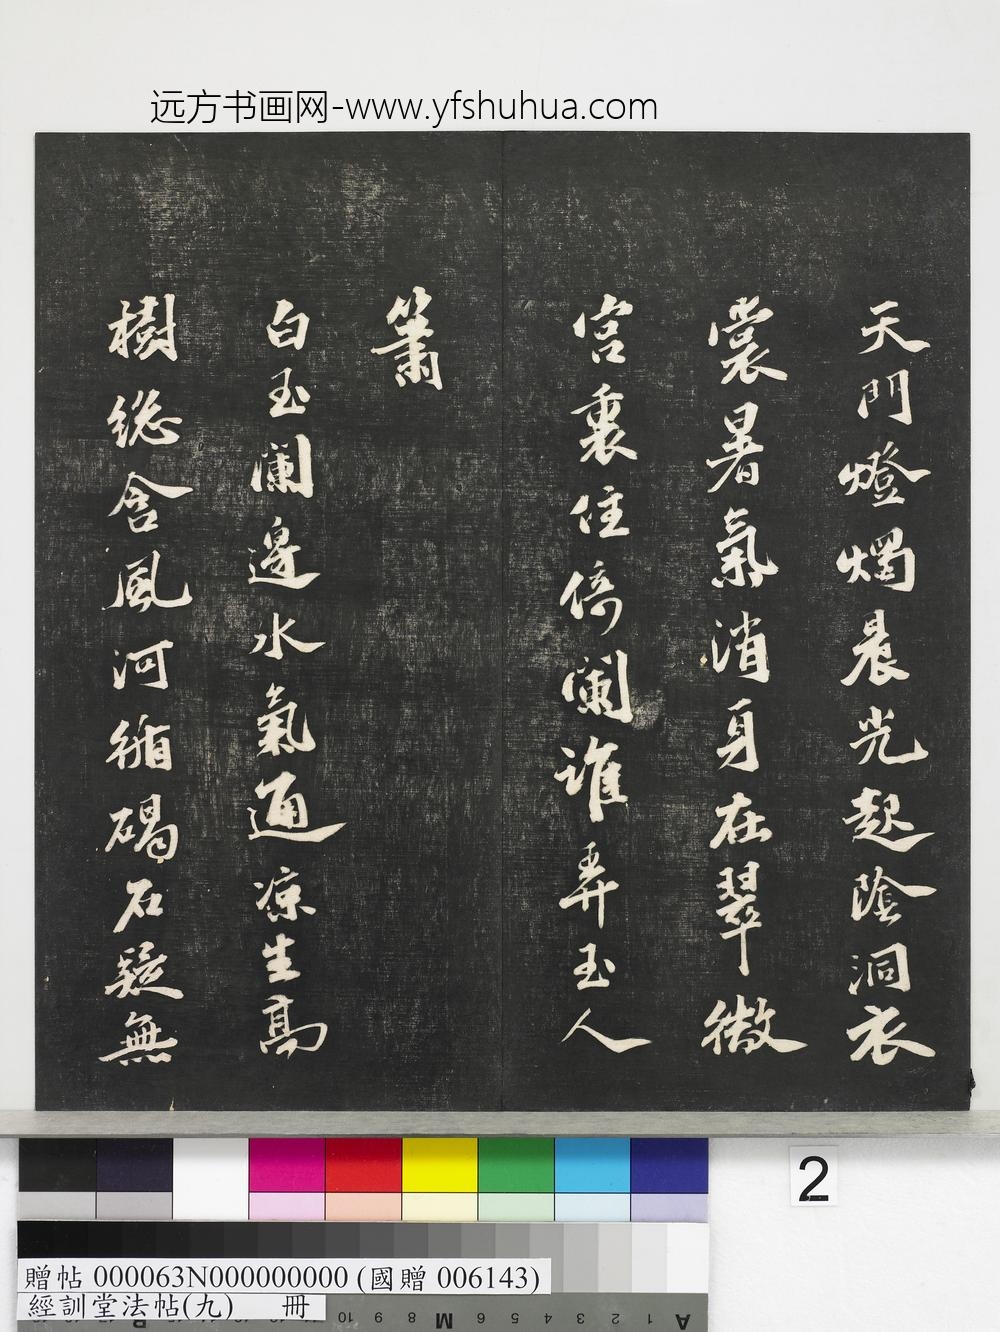 远方书画网-www.yfshuhua.com
天門燈燭晨光起陰洞衣
裳暑氣消身在翠微
宮裏住倚闌誰弄玉人
簫
白玉闌邊水氣通涼生高
樹総含風河循碣石疑無
2
贈帖 000063N000000000 (國贈 006143)
經訓堂法帖(九) 冊